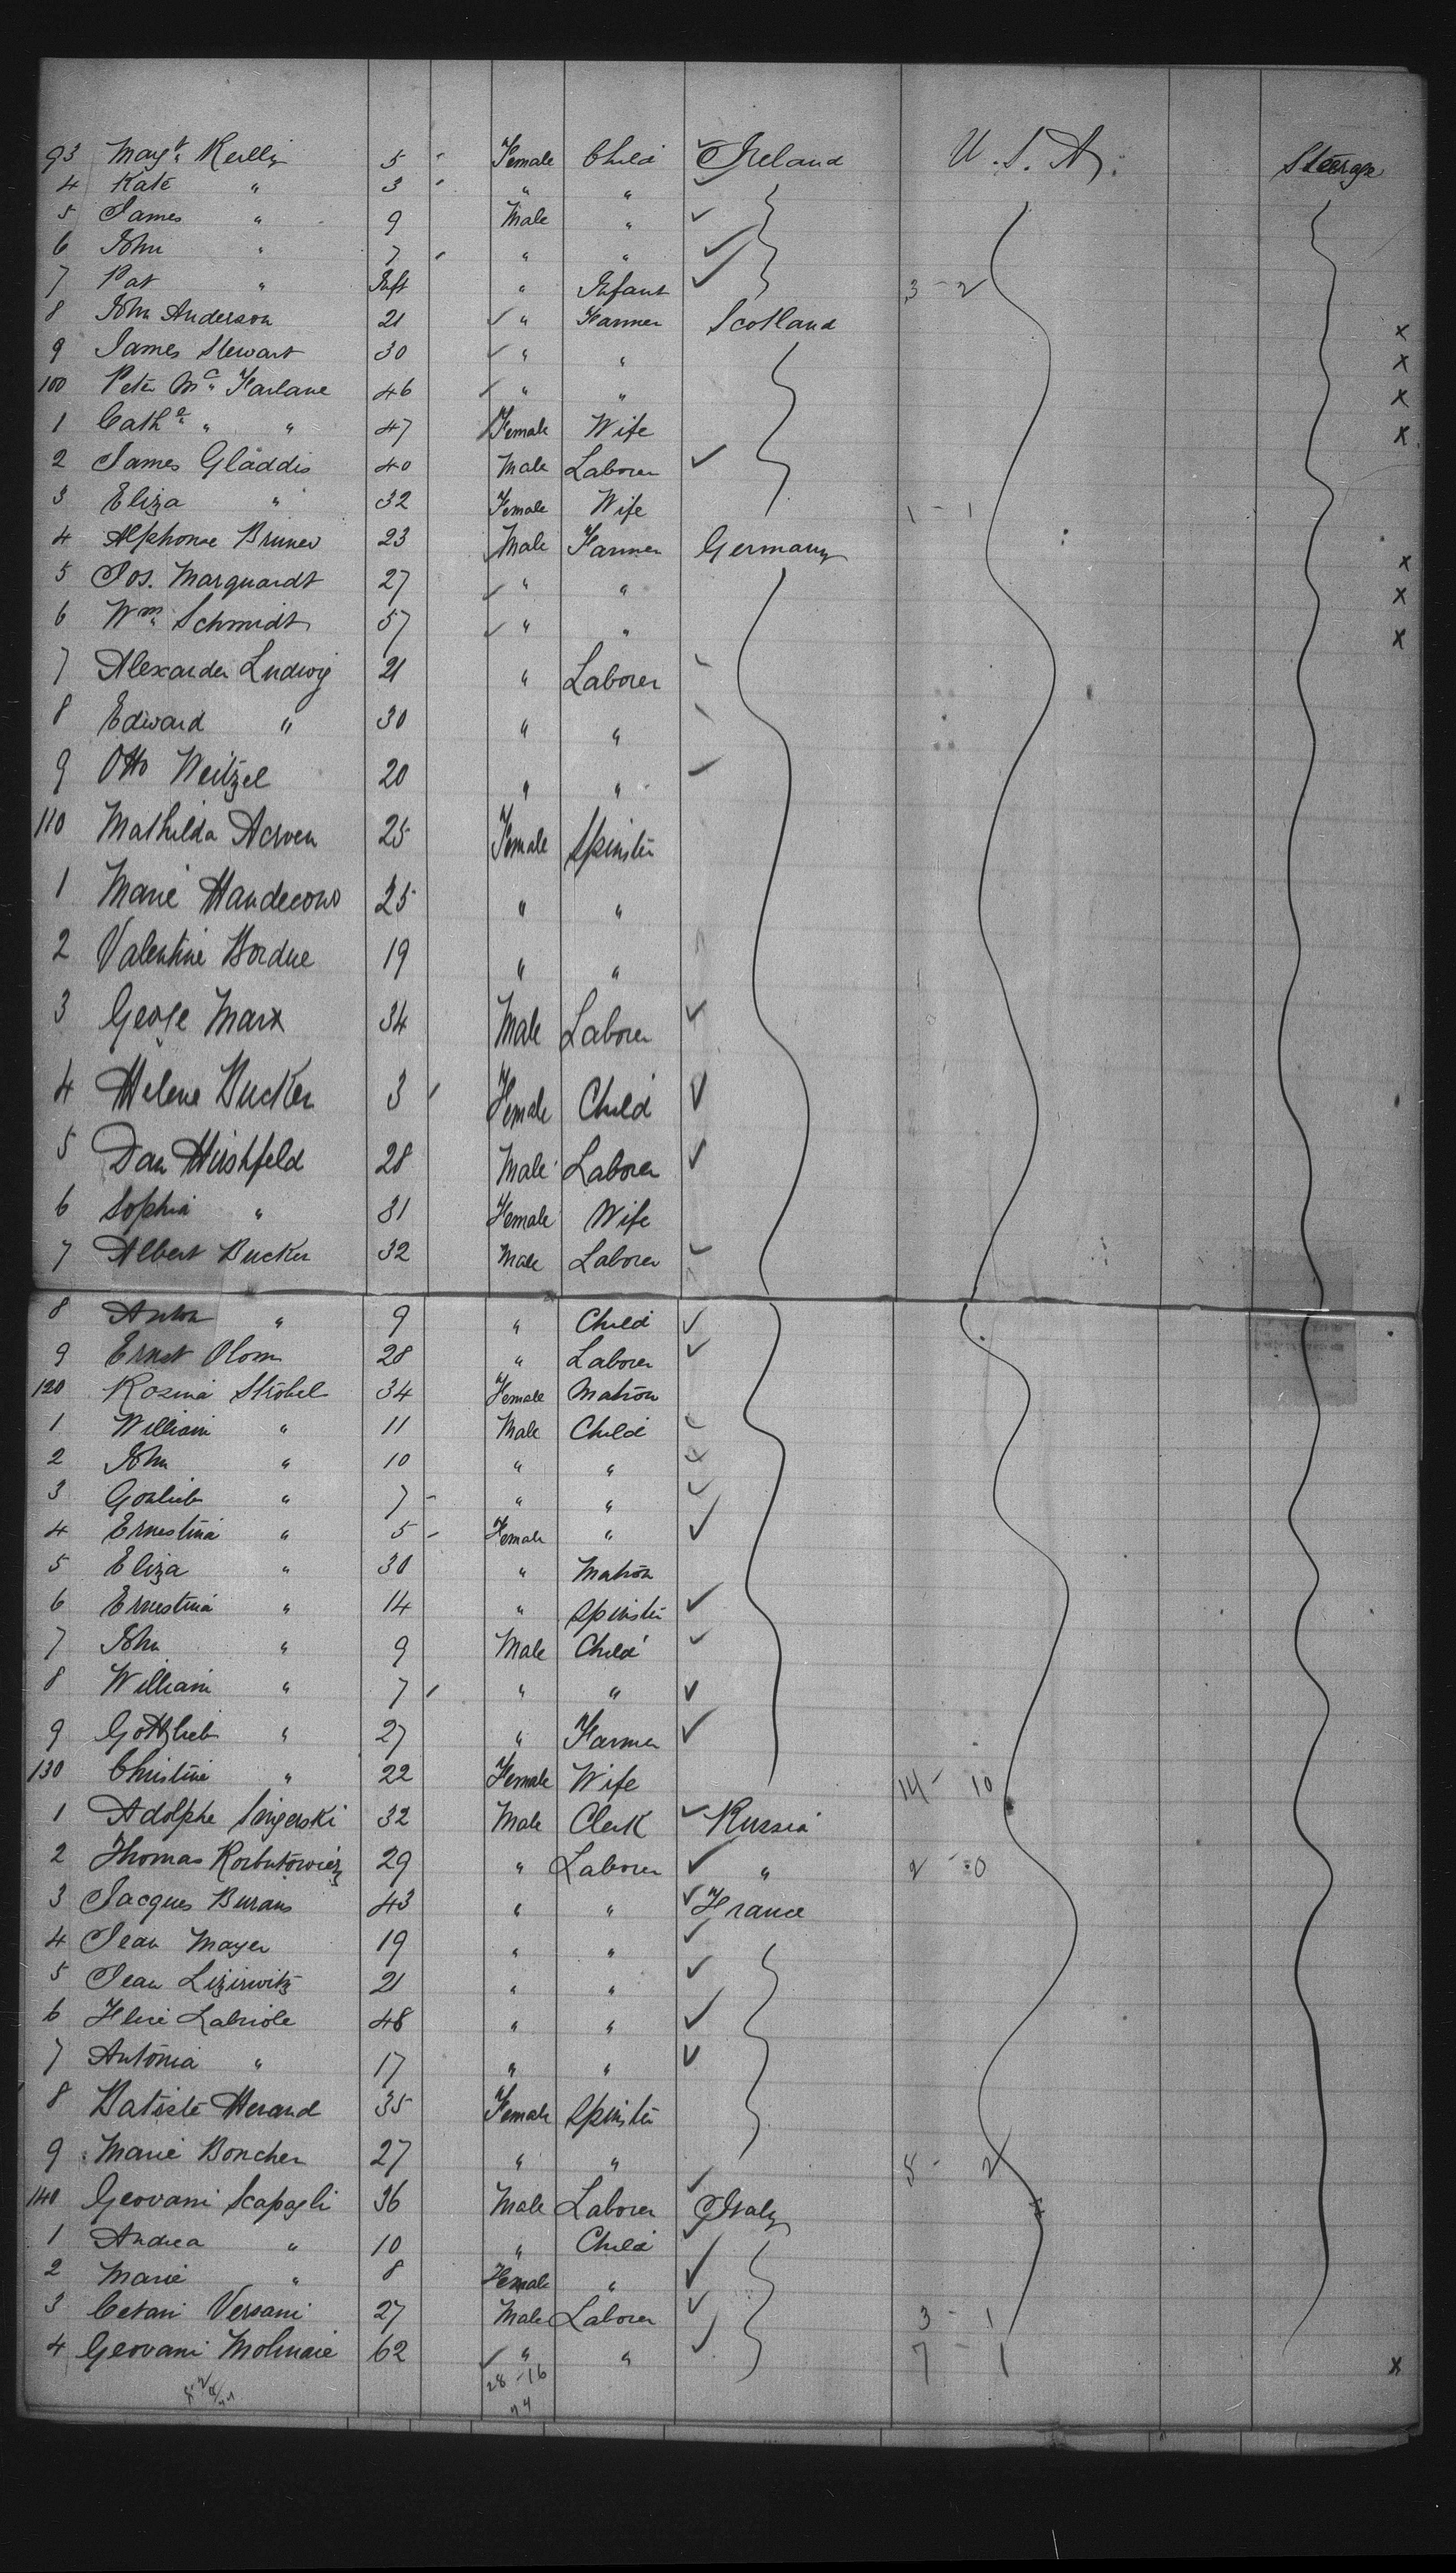 93 Margt Reilly 5 Female Child Ireland U.S.A. Steerage
4 Kate " 3 " "
5 James " 9 Male "
6 John " 7 " "
7 Pat " Inft " Infant 3 - 2
8 John Anderson 21 " Farmer Scotland x
9 James Stewart 30 " " x
100 Peter Mc Farlane 46 " " x
1 Cathe " " 47 Female Wife x
2 James Gladdis 40 Male Laborer
3 Eliza " 32 Female Wife 1 - 1
4 Alphonse Bruner 23 Male Farmer Germany x
5 Jos. Marquardt 27 " " x
6 Wm Schmidt 57 " " x
7 Alexander Ludwig 21 " Laborer
8 Edward " 30 " "
9 Otto Weitzel 20 " "
110 Mathilda 25 Female Spinster
1 Marie 25 " "
2 Valentine Bordue 19 " "
3 George Marx 34 Male Laborer
4 Helene Bucker 3 Female Child
5 Dan Hirshfeld 28 Male Laborer
6 Sophia " 31 Female Wife
7 Albert Bucker 32 Male Laborer
8 Anton " 9 " Child
9 Ernst Olom 28 " Laborer
120 Rosina Strobel 34 Female Matron
1 William " 11 Male Child
2 John " 10 " "
3 Gottlieb " 7 " "
4 Ernestina " 5 Female "
5 Eliza " 30 " Matron
6 Ernestina " 14 " Spinster
7 John " 9 Male Child
8 William " 7 " "
9 Gottlieb " 27 " Farmer
130 Christine " 22 Female Wife 14 - 10
1 Adolphe Singerski 32 Male Clerk Russia
2 Thomas 29 " Laborer " 2 - 0
3 Jacques Burans 43 " " France
4 Jean Mayer 19 " "
5 Jean 21 " "
6 Labriole 48 " "
7 Antonia " 17 " "
8 Batiste Herand 35 Female Spinster
9 Marie Boncher 27 " " 5 - 2
140 Geovani Scapagli 36 Male Laborer Italy
1 Andrea " 10 " Child
2 Marie " 8 Female "
3 Cetani Versani 27 Male Laborer 3 - 1
4 Geovani Molinaie 62 " " 7 - 1 x
28 - 16